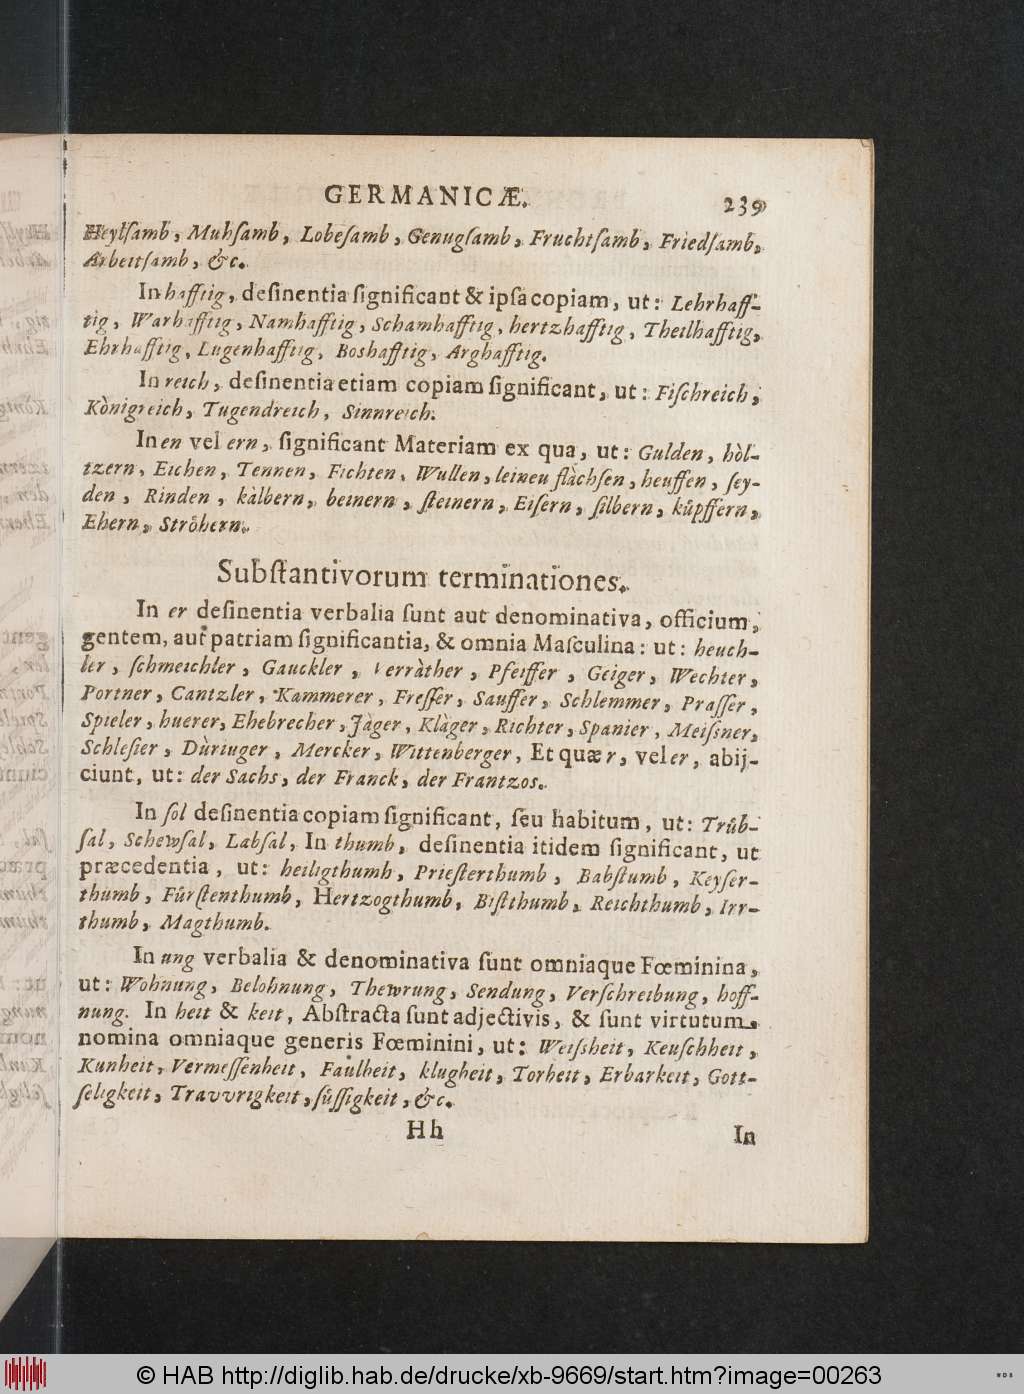 GERMANICÆ. 239
Heylſamb, Muhſamb, Lobeſamb, Genugſamb, Fruchtſamb, Friedſamb,
Arbeitſamb, &c.
In hafftig, deſinentia ſignificant & ipſa copiam, ut: Lehrhaff-
tig, Warhafftig, Namhafftig, Schamhafftig, hertzhafftig, Theilhafftig,
Ehrhafftig, Lugenhafftig, Boshafftig, Arghafftig.
In reich, deſinentia etiam copiam ſignificant, ut: Fiſchreich,
Kònigreich, Tugendreich, Sinnreich.
In en vel ern, ſignificant Materiam ex qua, ut: Gulden, hòl-
tzern, Eichen, Tennen, Fichten, Wullen, leineu flàchſen, heuffen, ſey-
den, Rinden, kàlbern, beinern, ſteinern, Eiſern, ſilbern, kůpffern,
Ehern, Ströhern.
Subſtantivorum terminationes.
In er deſinentia verbalia ſunt aut denominativa, officium,
gentem, aut patriam ſignificantia, & omnia Maſculina: ut: heuch-
ler, ſchmeichler, Gauckler, Verràther, Pfeiffer, Geiger, Wechter,
Portner, Cantzler, Kammerer, Freſſer, Sauffer, Schlemmer, Praſſer,
Spieler, huerer, Ehebrecher, Jàger, Klàger, Richter, Spanier, Meiſsner,
Schleſier, Dùriuger, Mercker, Wittenberger, Et quær, vel er, abij-
ciunt, ut: der Sachs, der Franck, der Frantzos.
In ſol deſinentia copiam ſignificant, ſeu habitum, ut: Trůb-
ſal, Schewſal, Labſal, In thumb, deſinentia itidem ſignificant, ut
præcedentia, ut: heiligthumb, Prieſterthumb, Babſtumb, Keyſer-
thumb, Fůrſtenthumb, Hertzogthumb, Biſtthumb, Reichthumb, Irr-
thumb, Magthumb.
In ung verbalia & denominativa ſunt omniaque Fœminina,
ut: Wohnung, Belohnung, Thewrung, Sendung, Verſchreibung, hoff-
nung. In heit & keit, Abſtracta ſunt adjectivis, & ſunt virtutum
nomina omniaque generis Fœminini, ut: Weiſsheit, Keuſchheit,
Kunheit, Vermeſſenheit, Faulheit, klugheit, Torheit, Erbarkeit, Gott-
ſeligkeit, Travvrigkeit, ſüſſigkeit, &c.
Hh In
© HAB http://diglib.hab.de/drucke/xb-9669/start.htm?image=00263